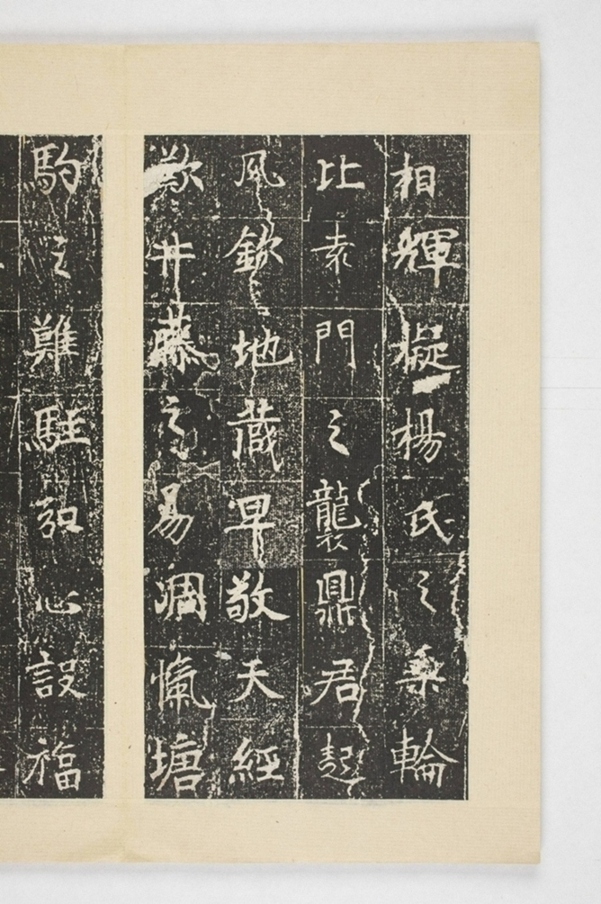 相輝擬楊氏之乘輪
比袁門之襲鼎君趍
風欽地藏早敬天經
歎井藤之易凋慨塘
駒之難駐割心設福